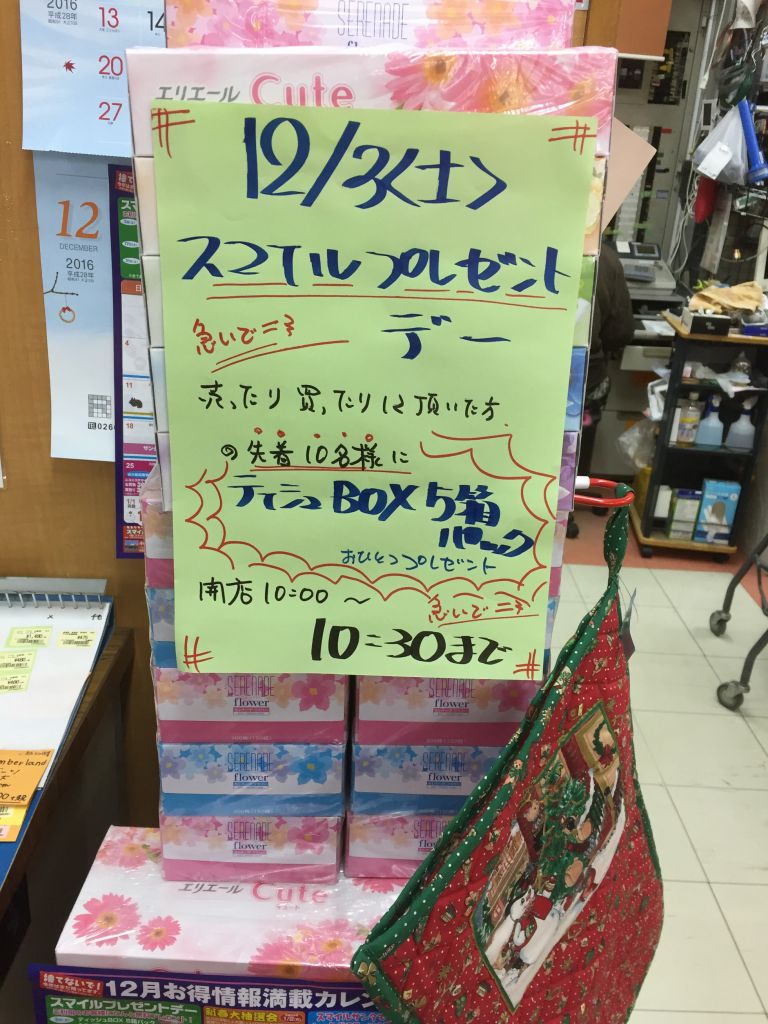 2016
平成28年
13
14
20
27
SERENADE
エリエール Cute
12/3<土>
スマイルプレゼント
デー
急いで=३
売ったり買ったりに頂いた方
の先着10名様に
ティシュBOX 5箱
パック
おひとつプレゼント
開店10:00〜
急いで=३
10:30まで
12
DECEMBER
2016
平成28年
4
11
18
25
SERENADE
flower
SERENADE
flower
SERENADE
flower
SERENADE
flower
エリエール Cute
捨てないで!
12月お得情報満載カレン
スマイルプレゼントデー
ティッシュBOX 5箱パック
新春大抽選会
スマイルサンタ